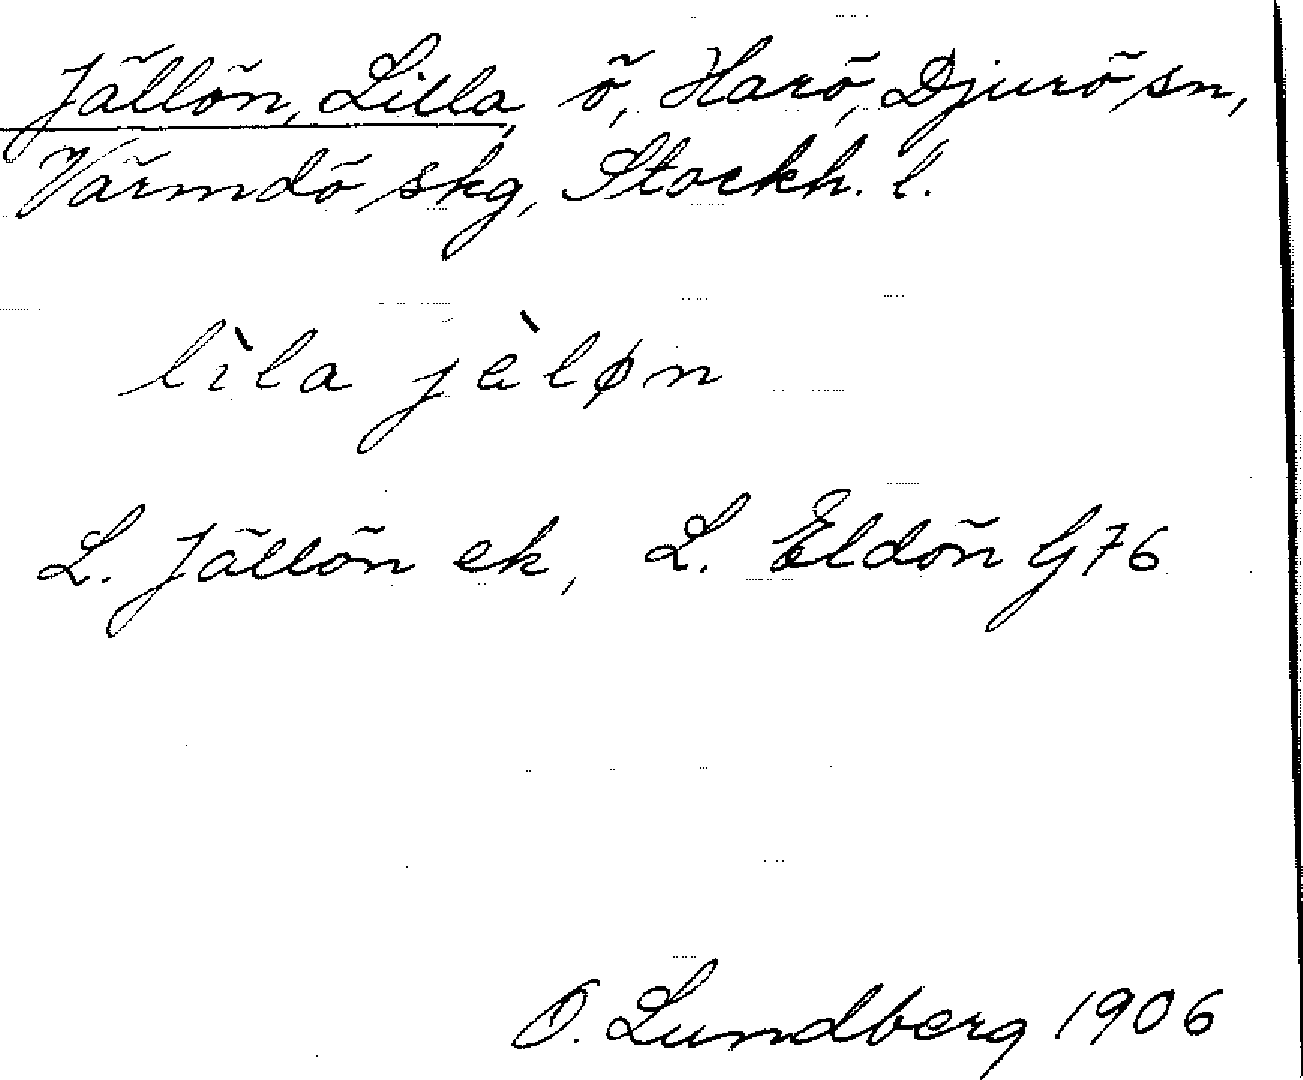 Jällön, Lilla, ö, Harö, Djurö sn,
Värmdö skg, Stockh. l.
lìla jèløn
L. Jällön ek, L. Eldön G 76
O. Lundberg 1906